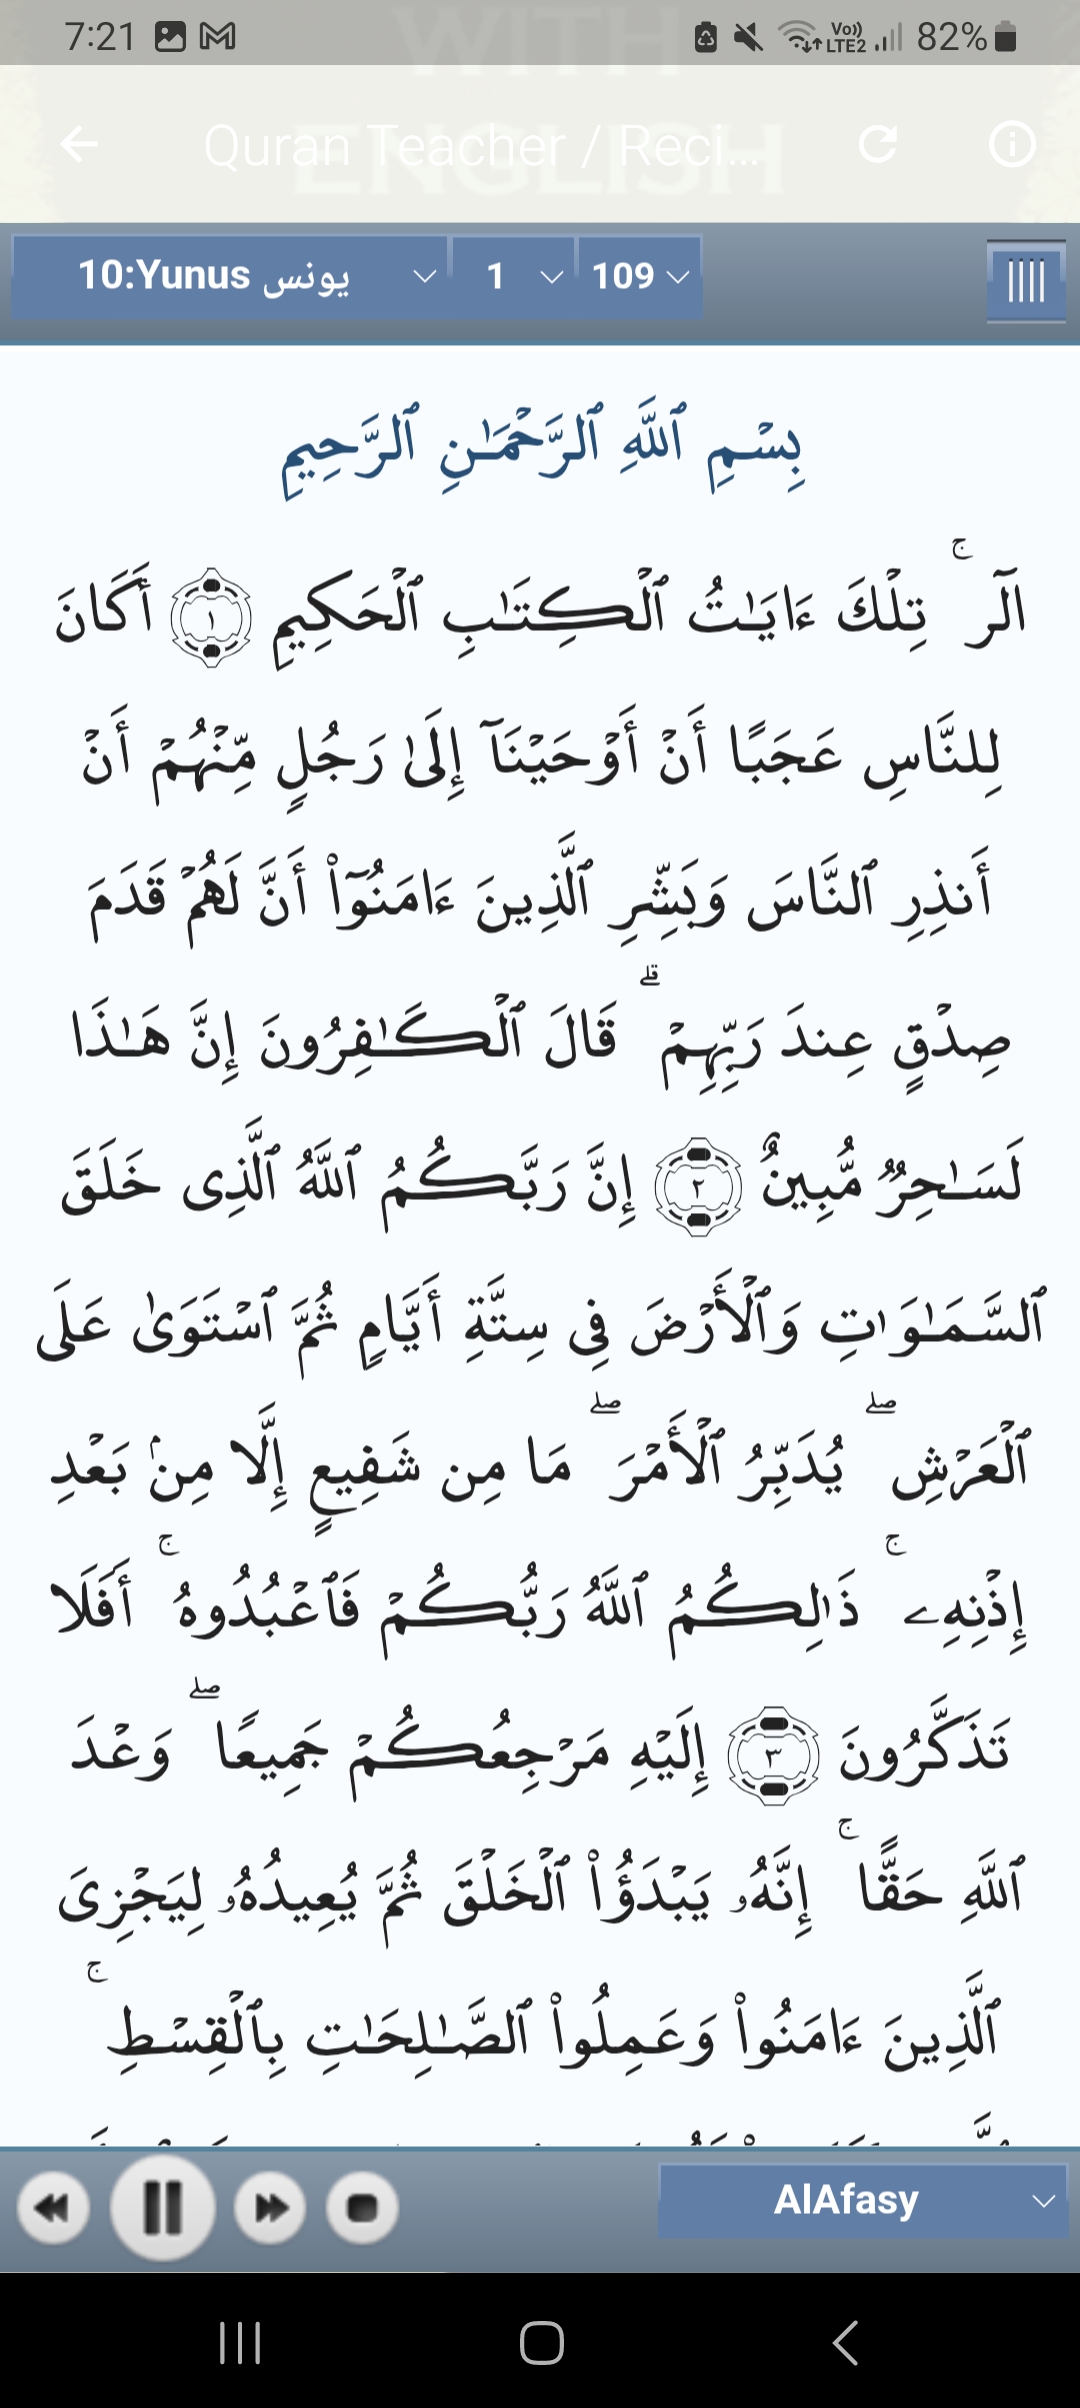 WITH
ENGLISH
7:21 Vo)) LTE2 82%
Quran Teacher / Reci...
10:Yunus يونس 1 109
بِسْمِ ٱللَّهِ ٱلرَّحْمَـٰنِ ٱلرَّحِيمِ
الٓر ۚ تِلْكَ ءَايَـٰتُ ٱلْكِتَـٰبِ ٱلْحَكِيمِ ١ أَكَانَ
لِلنَّاسِ عَجَبًا أَنْ أَوْحَيْنَآ إِلَىٰ رَجُلٍ مِّنْهُمْ أَنْ
أَنذِرِ ٱلنَّاسَ وَبَشِّرِ ٱلَّذِينَ ءَامَنُوٓا۟ أَنَّ لَهُمْ قَدَمَ
صِدْقٍ عِندَ رَبِّهِمْ ۗ قَالَ ٱلْكَـٰفِرُونَ إِنَّ هَـٰذَا
لَسَـٰحِرٌ مُّبِينٌ ٢ إِنَّ رَبَّكُمُ ٱللَّهُ ٱلَّذِى خَلَقَ
ٱلسَّمَـٰوَٰتِ وَٱلْأَرْضَ فِى سِتَّةِ أَيَّامٍ ثُمَّ ٱسْتَوَىٰ عَلَى
ٱلْعَرْشِ ۖ يُدَبِّرُ ٱلْأَمْرَ ۖ مَا مِن شَفِيعٍ إِلَّا مِنۢ بَعْدِ
إِذْنِهِۦ ۚ ذَٰلِكُمُ ٱللَّهُ رَبُّكُمْ فَٱعْبُدُوهُ ۚ أَفَلَا
تَذَكَّرُونَ ٣ إِلَيْهِ مَرْجِعُكُمْ جَمِيعًا ۖ وَعْدَ
ٱللَّهِ حَقًّا ۚ إِنَّهُۥ يَبْدَؤُا۟ ٱلْخَلْقَ ثُمَّ يُعِيدُهُۥ لِيَجْزِىَ
ٱلَّذِينَ ءَامَنُوا۟ وَعَمِلُوا۟ ٱلصَّـٰلِحَـٰتِ بِٱلْقِسْطِ ۚ
AlAfasy